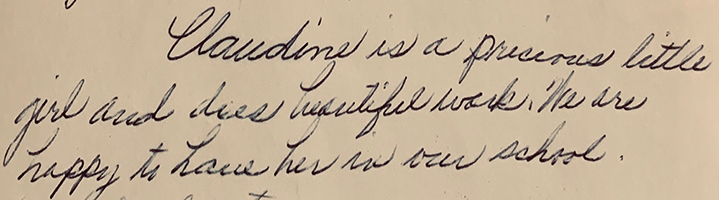 Claudine is a precious little
girl and does beautiful work. We are
happy to have her in our school.